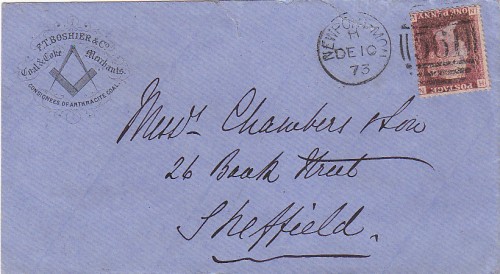 F.T. BOSHIER & Co
Coal & Coke Merchants.
CONSIGNEES OF ANTHRACITE COAL
NEWPORT-MON
H
DE 10
73
POSTAGE
ONE PENNY
Messrs Chambers & Son
26 Bank Street
Sheffield.